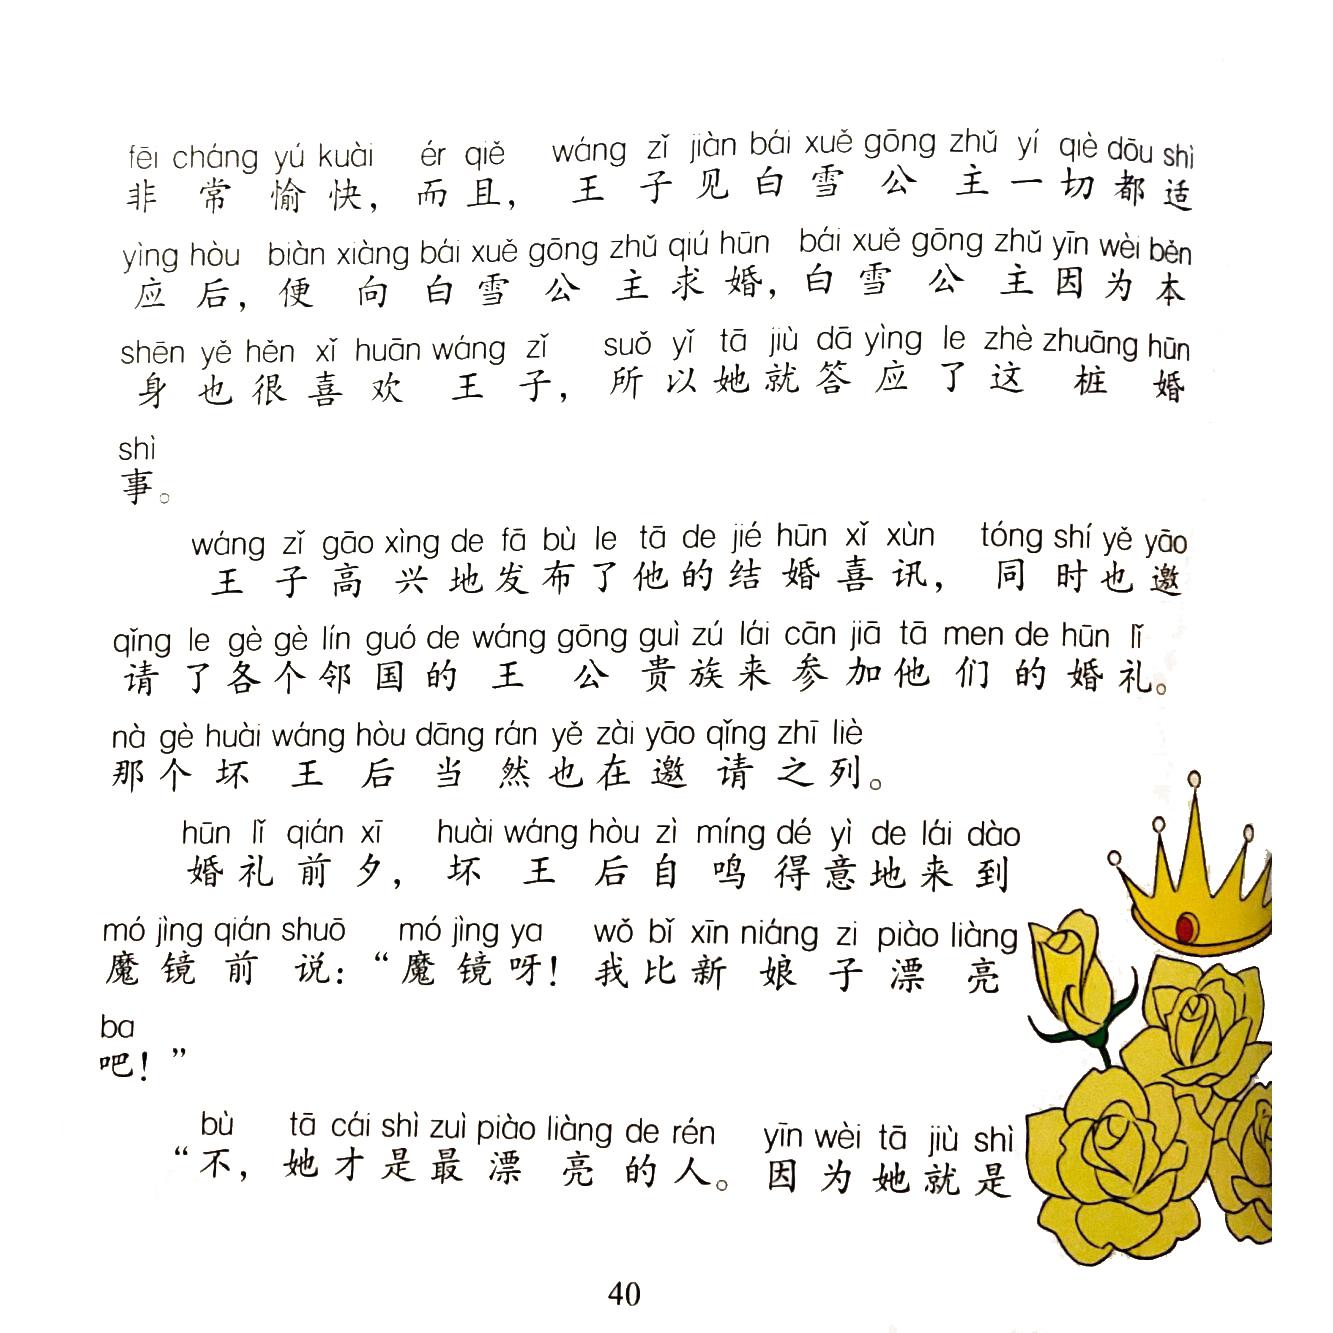 fēi cháng yú kuài ér qiě wáng zǐ jiàn bái xuě gōng zhǔ yí qiè dōu shì
非常愉快，而且，王子见白雪公主一切都适
yìng hòu biàn xiàng bái xuě gōng zhǔ qiú hūn bái xuě gōng zhǔ yīn wèi běn
应后，便向白雪公主求婚，白雪公主因为本
shēn yě hěn xǐ huān wáng zǐ suǒ yǐ tā jiù dā yìng le zhè zhuāng hūn
身也很喜欢王子，所以她就答应了这桩婚
shì
事。
wáng zǐ gāo xìng de fā bù le tā de jié hūn xǐ xùn tóng shí yě yāo
王子高兴地发布了他的结婚喜讯，同时也邀
qǐng le gè gè lín guó de wáng gōng guì zú lái cān jiā tā men de hūn lǐ
请了各个邻国的王公贵族来参加他们的婚礼。
nà gè huài wáng hòu dāng rán yě zài yāo qǐng zhī liè
那个坏王后当然也在邀请之列。
hūn lǐ qián xī huài wáng hòu zì míng dé yì de lái dào
婚礼前夕，坏王后自鸣得意地来到
mó jìng qián shuō mó jìng ya wǒ bǐ xīn niáng zi piào liàng
魔镜前说：“魔镜呀！我比新娘子漂亮
ba
吧！”
bù tā cái shì zuì piào liàng de rén yīn wèi tā jiù shì
“不，她才是最漂亮的人。因为她就是
40